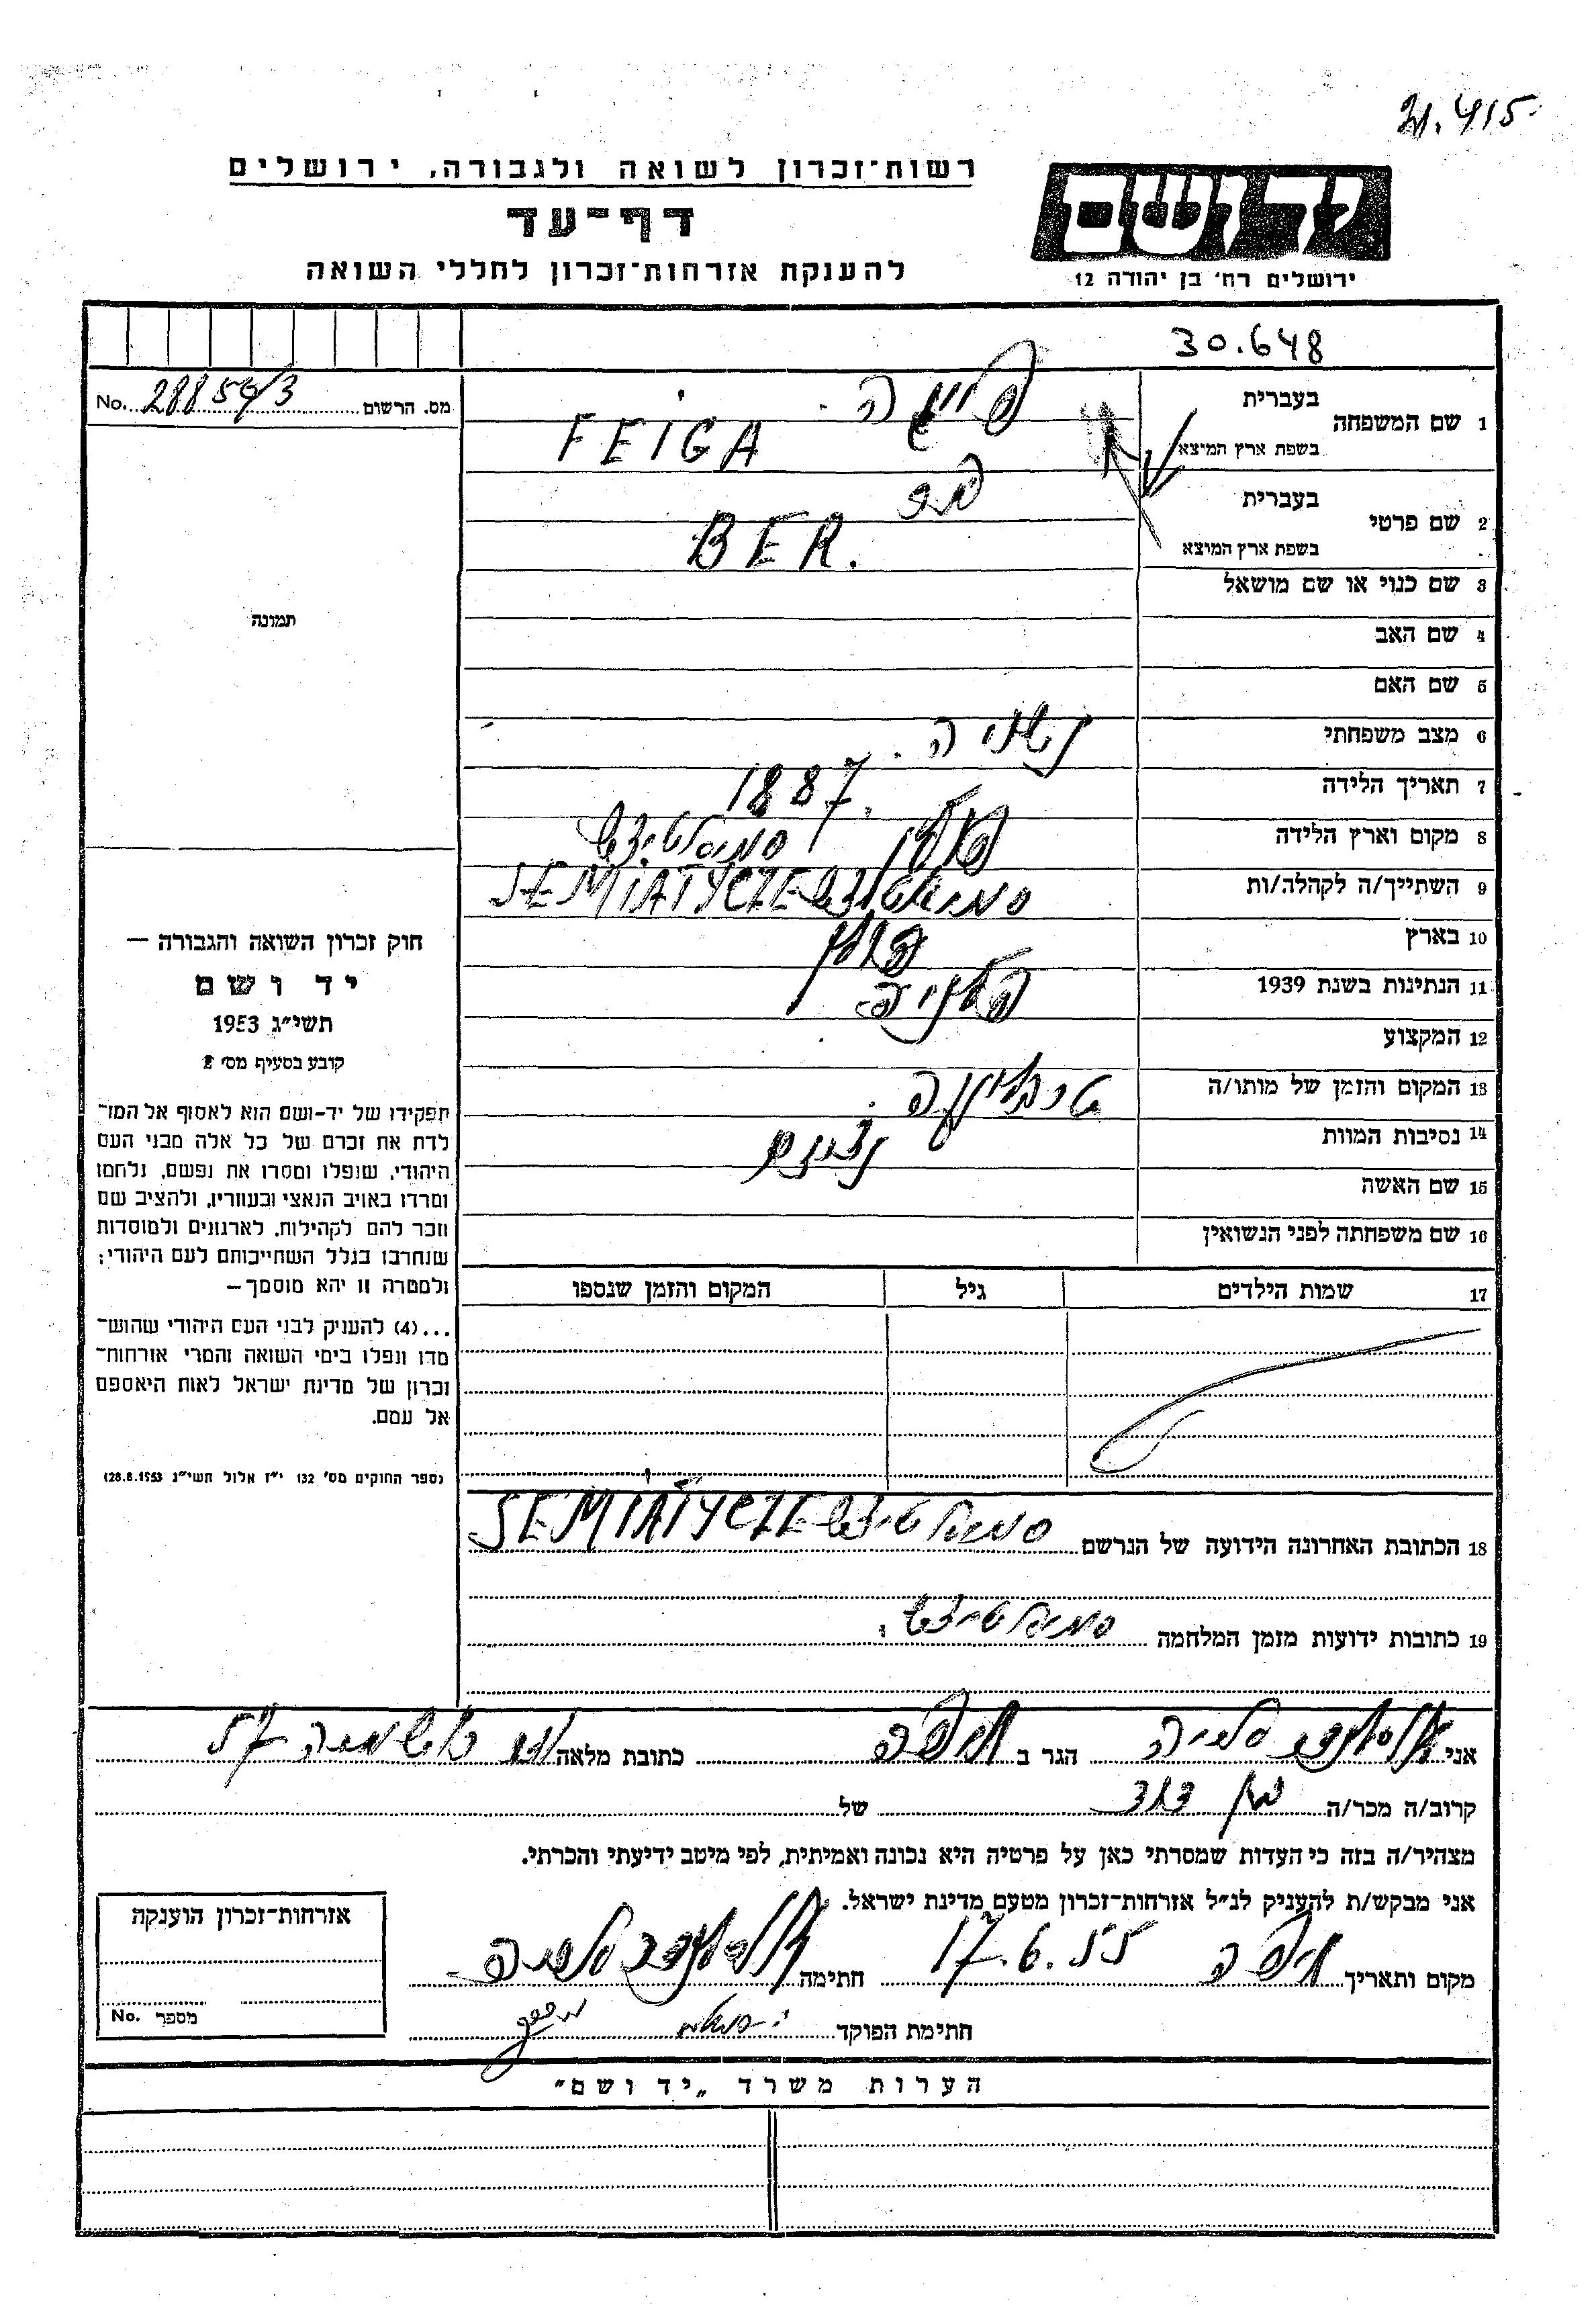 21.415
רשות־זכרון לשואה ולגבורה, ירושלים
יד ושם
דף־עד
ירושלים רח' בן יהודה 12
להענקת אזרחות־זכרון לחללי השואה
30.648
מס. הרשום 288 56/3 No.
1 שם המשפחה בעברית פייגה
בשפת ארץ המיצא FEIGA
2 שם פרטי בעברית בר
בשפת ארץ המוצא BER.
3 שם כנוי או שם מושאל
תמונה
4 שם האב
5 שם האם
6 מצב משפחתי נשויה
7 תאריך הלידה 1887
8 מקום וארץ הלידה פולין סמיאטיצש
9 השתייך/ה לקהלה/ות סמיאטיצש SEMIATYCZE
10 בארץ פולין
11 הנתינות בשנת 1939 פולניה
12 המקצוע
13 המקום והזמן של מותו/ה טרבלינקה
14 נסיבות המוות
15 שם האשה
16 שם משפחתה לפני הנשואין
חוק זכרון השואה והגבורה —
יד ושם
תשי״ג 1953
קובע בסעיף מס' 2
תפקידו של יד-ושם הוא לאסוף אל המו־
לדת את זכרם של כל אלה מבני העם
היהודי, שנפלו ומסרו את נפשם, נלחמו
ומרדו באויב הנאצי ובעוזריו, ולהציב שם
וזכר להם לקהילות, לארגונים ולמוסדות
שנחרבו בגלל השתייכותם לעם היהודי;
ולמטרה זו יהא מוסמך —
...(4) להעניק לבני העם היהודי שהוש־
מדו ונפלו בימי השואה והמרי אזרחות־
זכרון של מדינת ישראל לאות היאספם
אל עמם.
(ספר החוקים מס' 132 י״ז אלול תשי״ג 28.8.1953)
17 שמות הילדים גיל המקום והזמן שנספו
18 הכתובת האחרונה הידועה של הנרשם סמיאטיצש SEMIATYCZE
19 כתובות ידועות מזמן המלחמה סמיאטיצש
אני הגר ב חיפה כתובת מלאה 57
קרוב/ה מכר/ה בן דוד של
מצהיר/ה בזה כי העדות שמסרתי כאן על פרטיה היא נכונה ואמיתית, לפי מיטב ידיעתי והכרתי.
אני מבקש/ת להעניק לנ״ל אזרחות־זכרון מטעם מדינת ישראל.
מקום ותאריך חיפה 17.6.55 חתימה
חתימת הפוקד
אזרחות־זכרון הוענקה
מספר No.
הערות משרד „יד ושם״